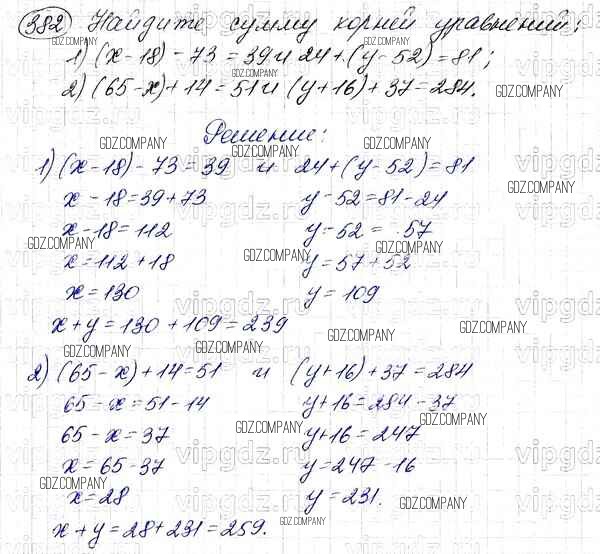 382 Найдите сумму корней уравнений:
1) (x-18)-73=39 и 24+(y-52)=81;
2) (65-x)+14=51 и (y+16)+37=284.
Решение:
1) (x-18)-73=39 и 24+(y-52)=81
x-18=39+73 y-52=81-24
x-18=112 y-52= 57
x=112+18 y=57+52
x=130 y=109
x+y=130+109=239
2) (65-x)+14=51 и (y+16)+37=284
65-x=51-14 y+16=284-37
65-x=37 y+16=247
x=65-37 y=247-16
x=28 y=231.
x+y=28+231=259.